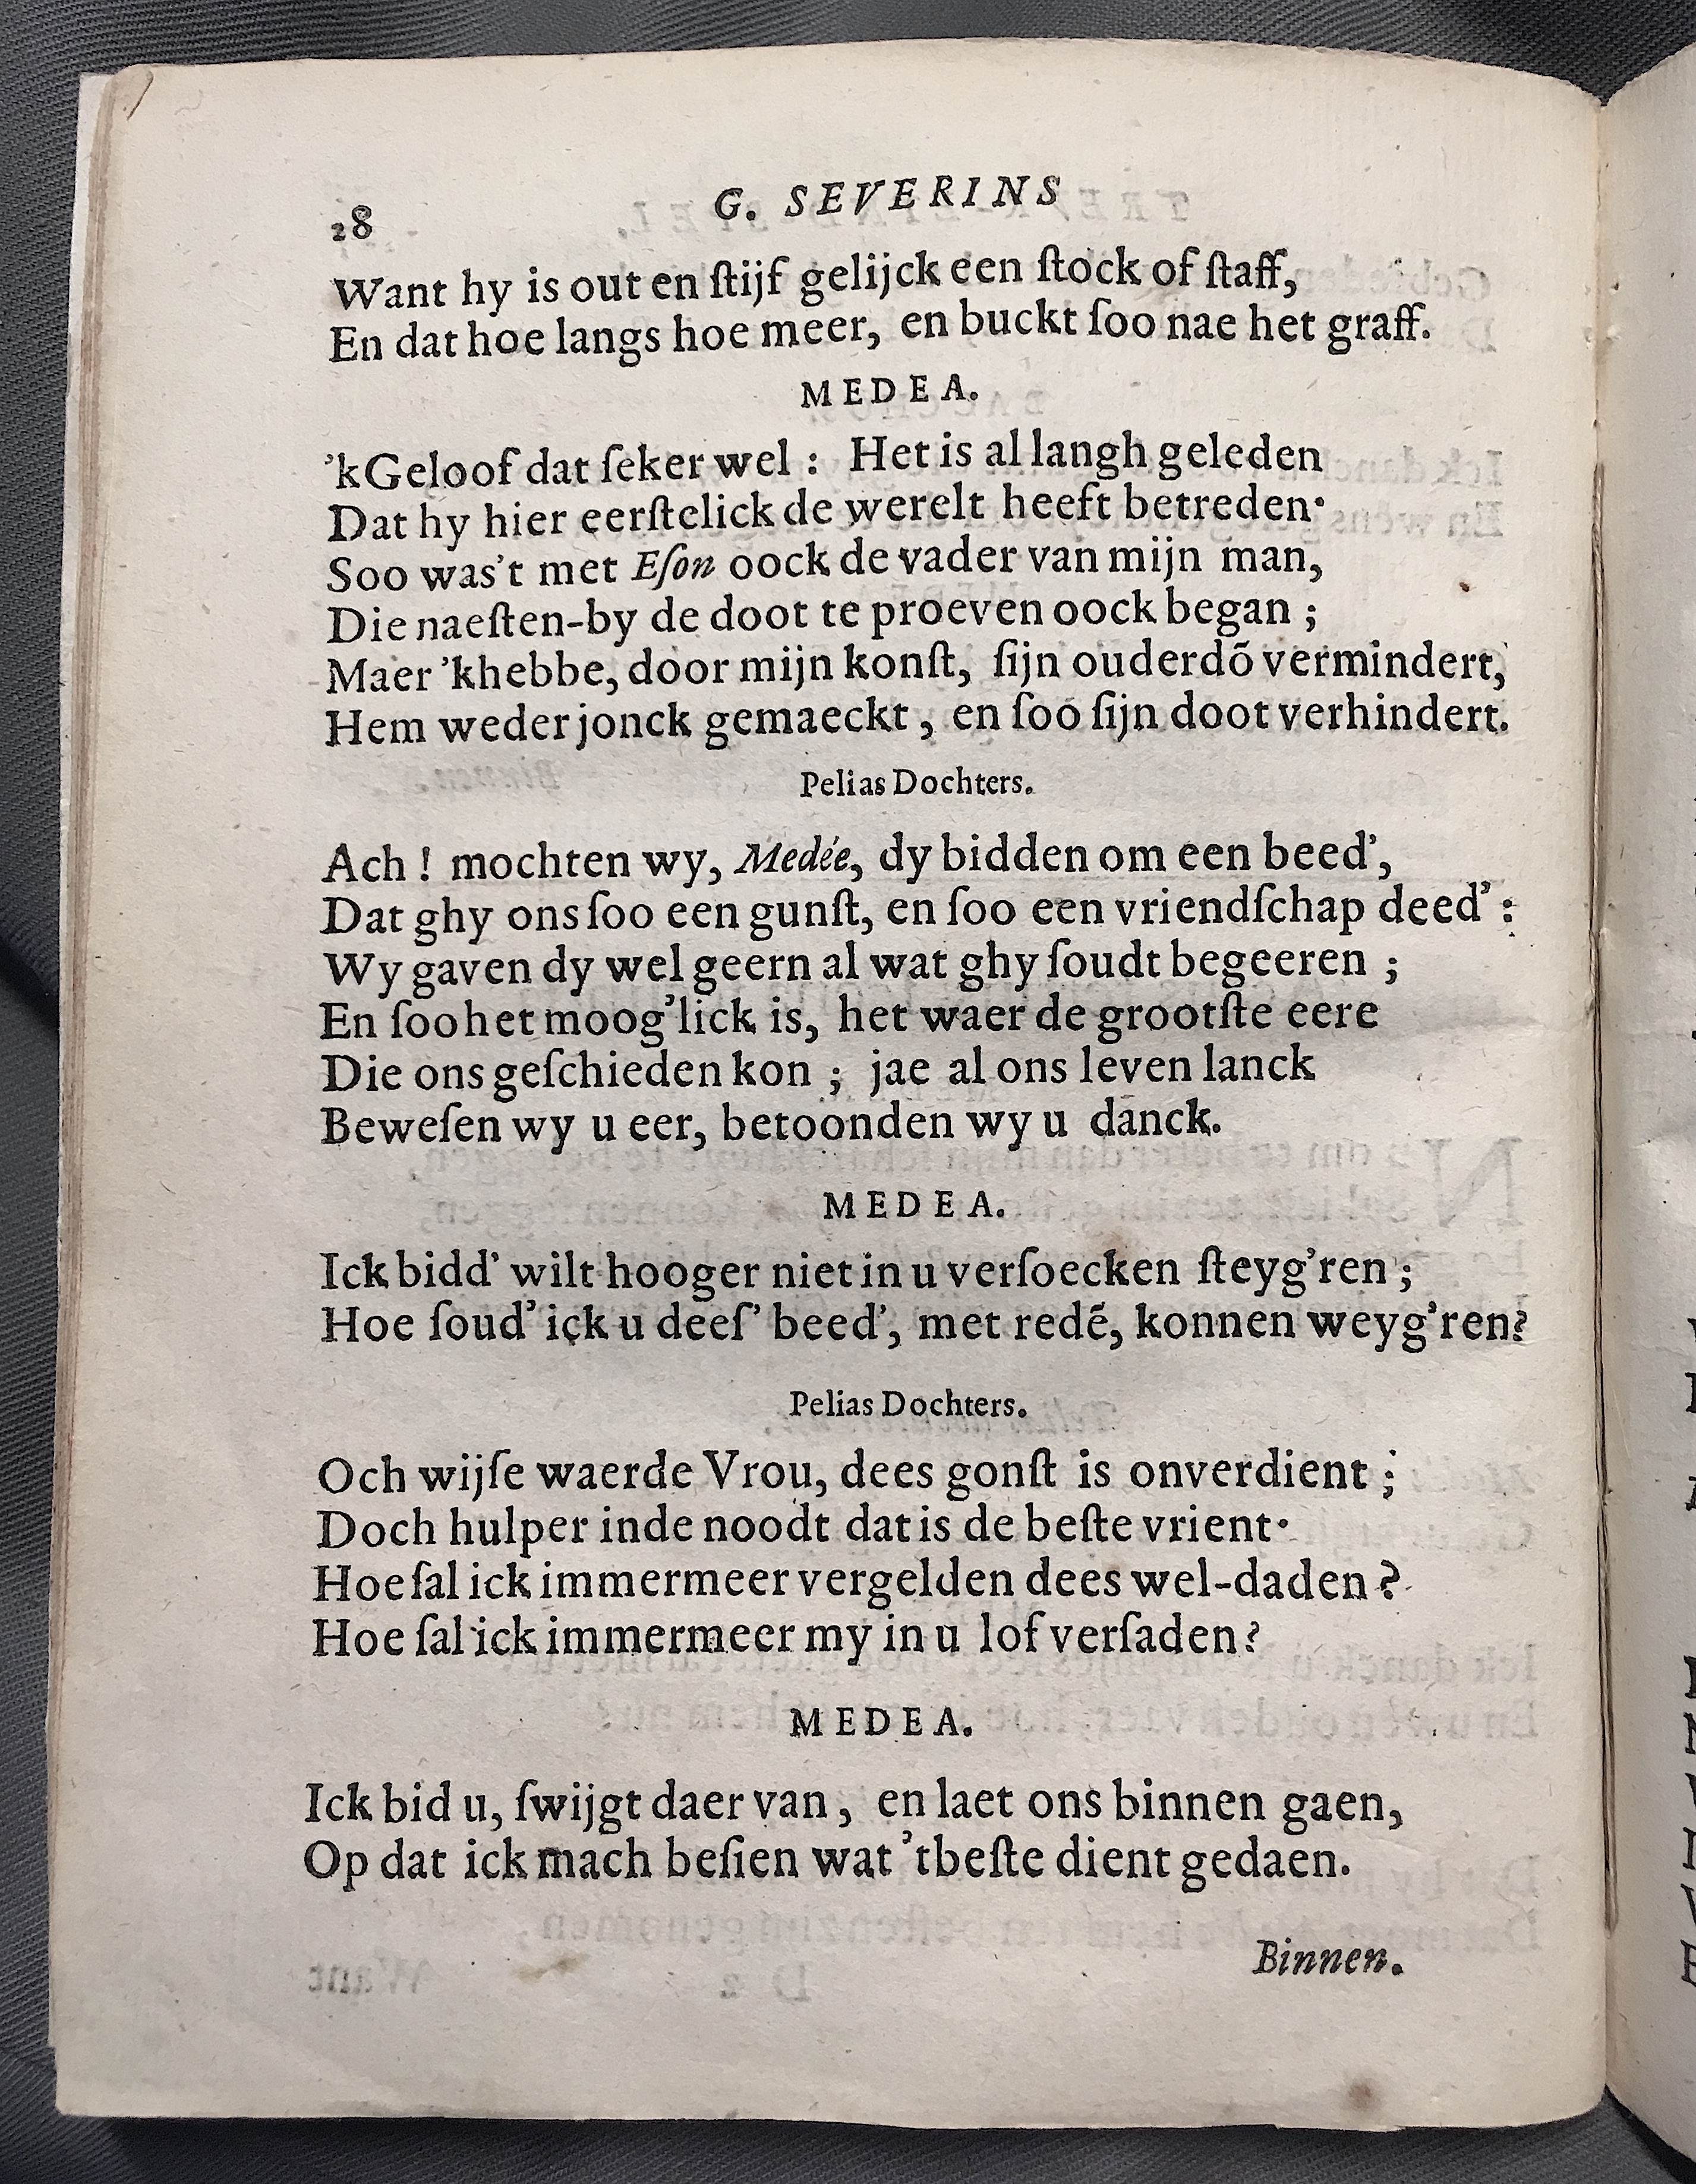 28
G. SEVERINS
Want hy is out en ſtijf gelijck een ſtock of ſtaff,
En dat hoe langs hoe meer, en buckt ſoo nae het graff.
MEDEA.
'kGeloof dat ſeker wel : Het is al langh geleden
Dat hy hier eerſtelick de werelt heeft betreden·
Soo was't met Eſon oock de vader van mijn man,
Die naeſten-by de doot te proeven oock began ;
Maer 'khebbe, door mijn konſt, ſijn ouderdõ vermindert,
Hem weder jonck gemaeckt, en ſoo ſijn doot verhindert.
Pelias Dochters.
Ach ! mochten wy, Medée, dy bidden om een beed',
Dat ghy ons ſoo een gunſt, en ſoo een vriendſchap deed' :
Wy gaven dy wel geern al wat ghy ſoudt begeeren ;
En ſoo het moog'lick is, het waer de grootſte eere
Die ons geſchieden kon ; jae al ons leven lanck
Beweſen wy u eer, betoonden wy u danck.
MEDEA.
Ick bidd' wilt hooger niet in u verſoecken ſteyg'ren ;
Hoe ſoud' ick u deeſ' beed', met redẽ, konnen weyg'ren?
Pelias Dochters.
Och wijſe waerde Vrou, dees gonſt is onverdient ;
Doch hulper inde noodt dat is de beſte vrient·
Hoe ſal ick immermeer vergelden dees wel-daden ?
Hoe ſal ick immermeer my in u lof verſaden?
MEDEA.
Ick bid u, ſwijgt daer van, en laet ons binnen gaen,
Op dat ick mach beſien wat 'tbeſte dient gedaen.
Binnen.